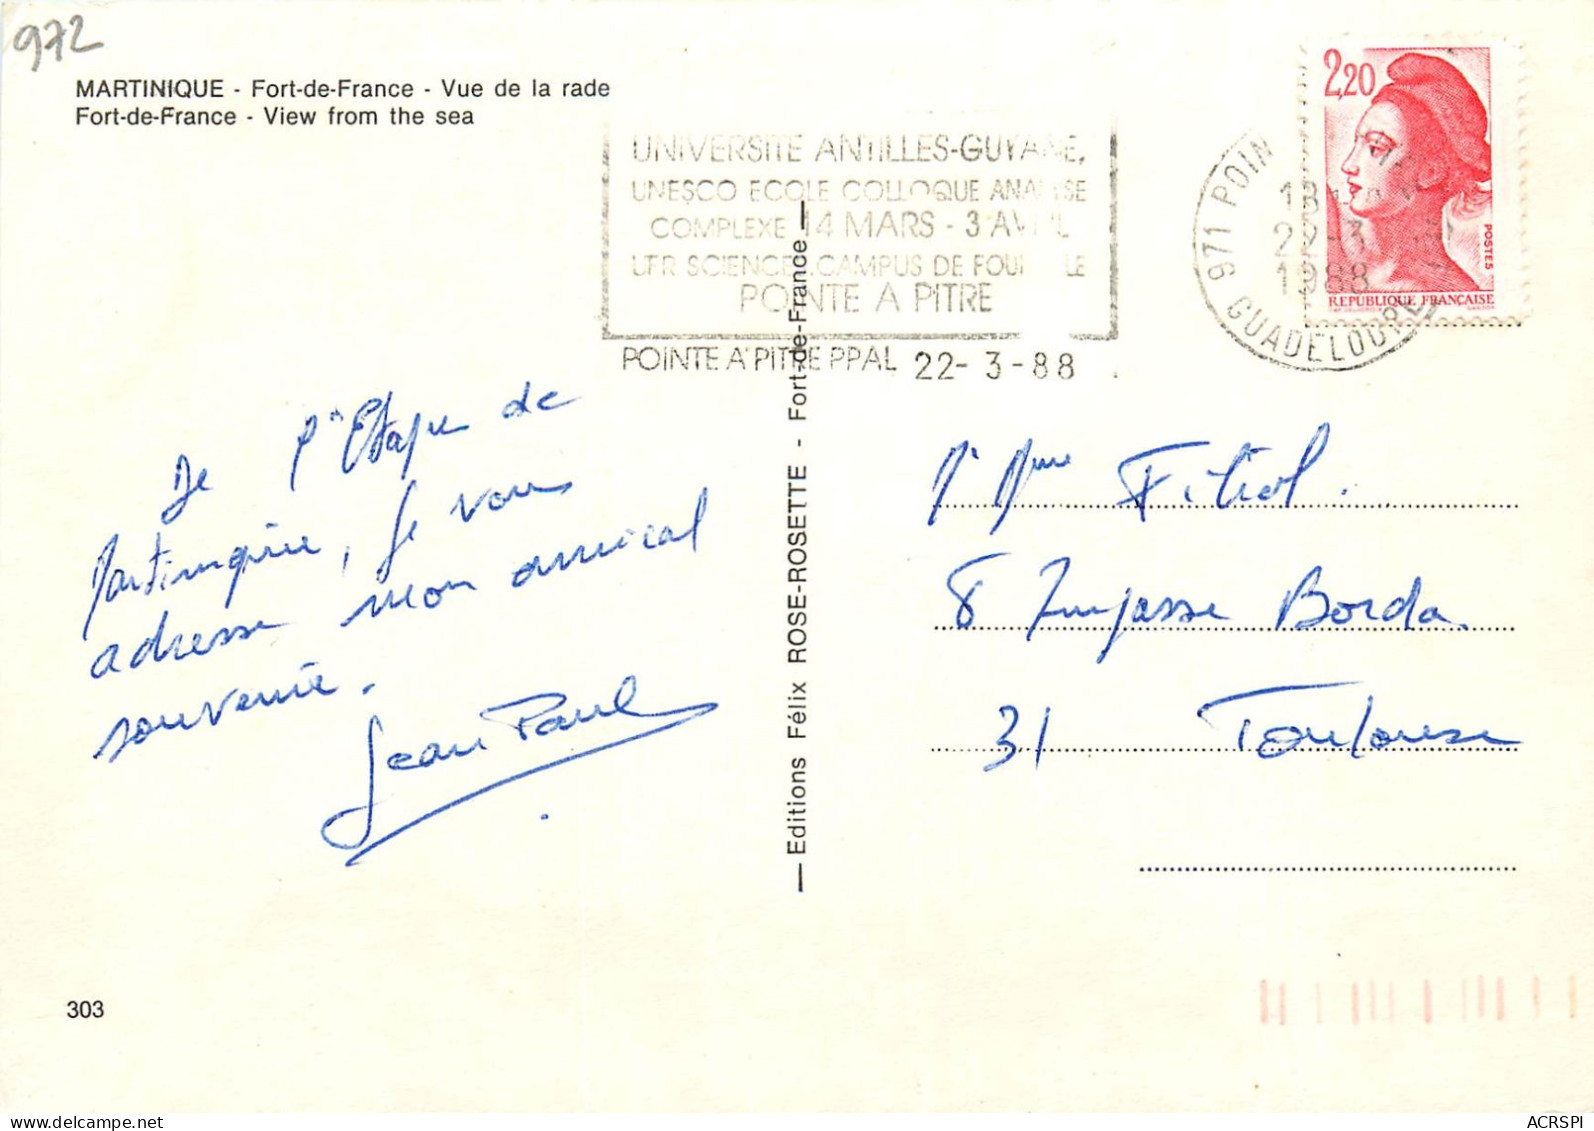 972
MARTINIQUE - Fort-de-France - Vue de la rade
Fort-de-France - View from the sea
UNIVERSITE ANTILLES-GUYANE,
UNESCO ECOLE COLLOQUE ANALYSE
COMPLEXE 14 MARS - 3 AVRIL
UFR SCIENCES CAMPUS DE FOUILLOLE
POINTE A PITRE
POINTE A PITRE PPAL 22-3-88
971 POIN
18
22-3
1988
GUADELOUPE
2,20
POSTES
REPUBLIQUE FRANÇAISE
De l'Etape de
Martinique, Je vous
adresse mon amical
souvenir.
Jean Paul
Editions Félix ROSE-ROSETTE - Fort-de-France
Mme Fitial.
8 Impasse Borda
31 Toulouse
303
ACRSPI